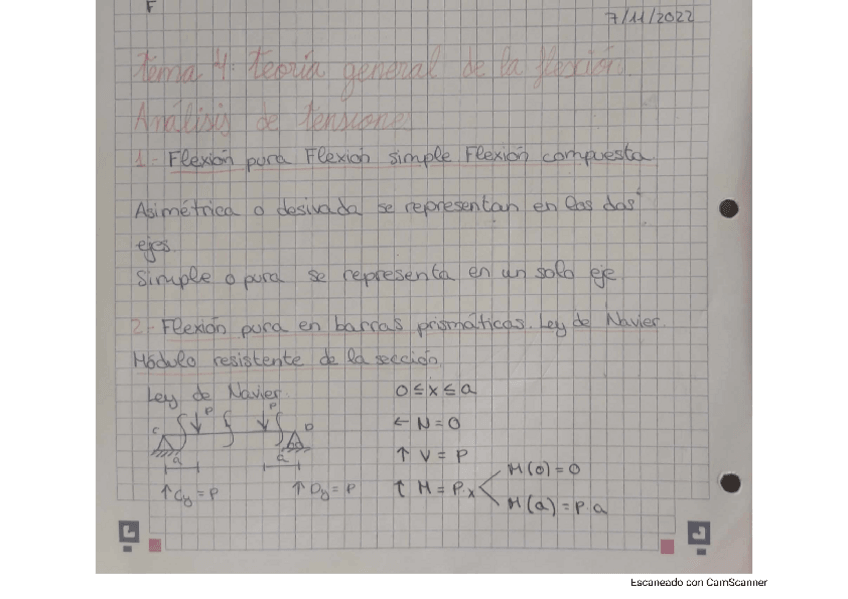 F
7/11/2022
Tema 4: Teoría general de la flexión.
Análisis de tensiones
1- Flexión pura Flexión simple Flexión compuesta
Asimétrica o desivada se representan en las dos
ejes.
Simple o pura se representa en un solo eje
2- Flexión pura en barras prismáticas. Ley de Navier.
Módulo resistente de la sección.
Ley de Navier.
P P
C D
a a
↑ Cy = P ↑ Dy = P
0 ≤ x ≤ a
← N = 0
↑ V = P
↑ M = P.x
M(0) = 0
M(a) = P.a
Escaneado con CamScanner